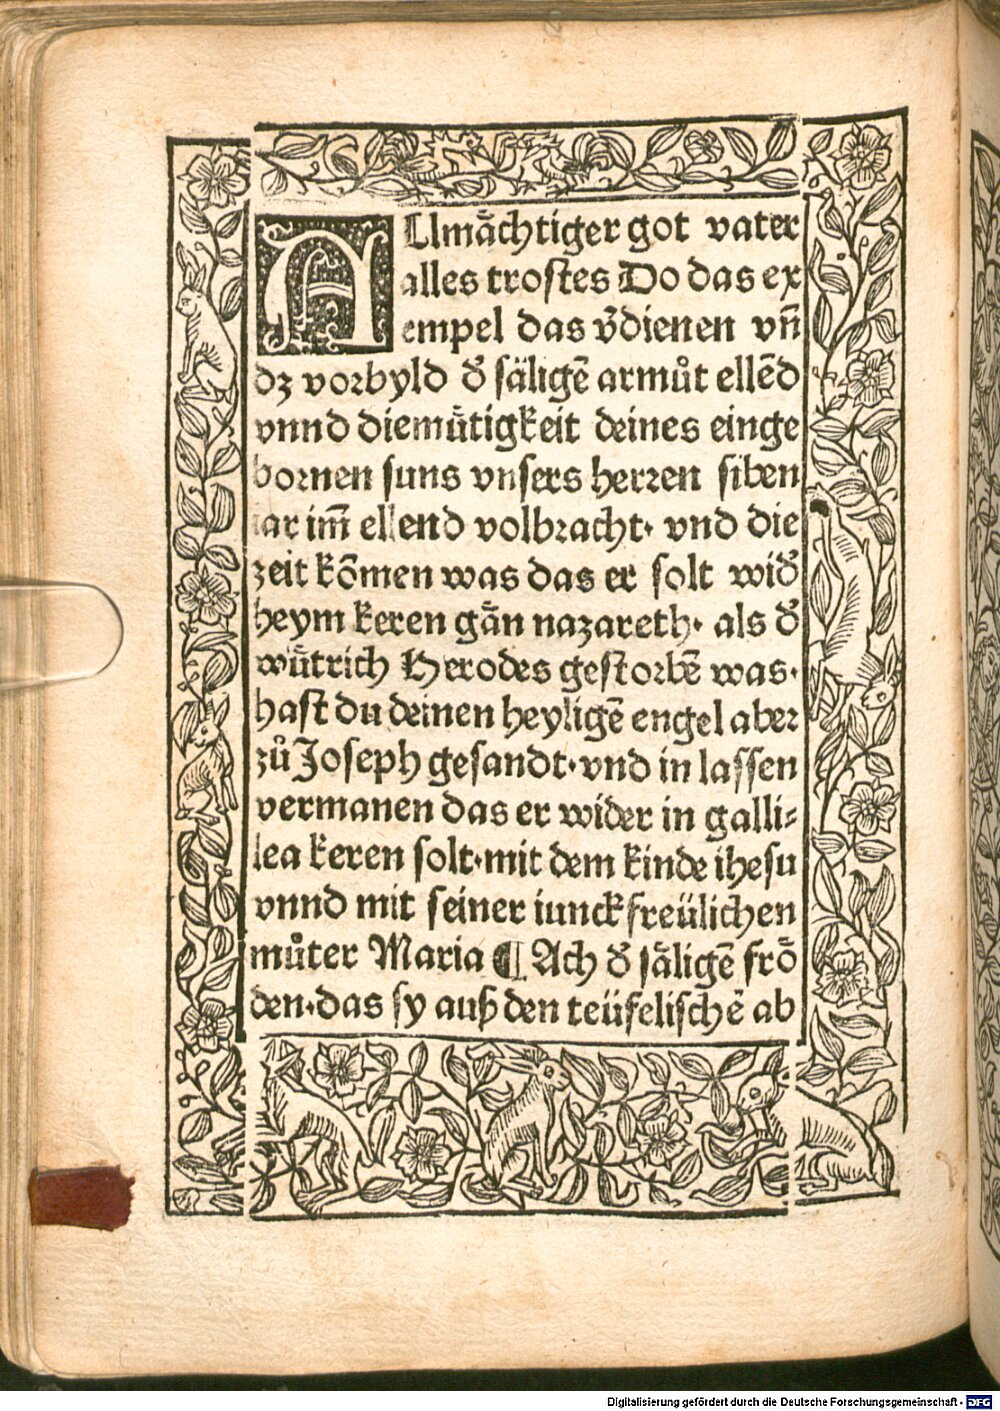 ALlmåchtiger got vater
alles trostes Do das ex
empel das v̄dienen vn̄
dz vorbyld d̄ såligē armůt ellēd
vnnd diemůtigkeit deines einge
bornen suns vnsers herren siben
iar im̄ ellend volbracht· vnd die
zeit kōmen was das er solt wid̄
heym keren gån nazareth· als d̄
wůtrich Herodes gestorbē was·
hast du deinen heyligē engel aber
zů Joseph gesandt·vnd in lassen
vermanen das er wider in galli⸗
lea keren solt·mit dem kinde ihesu
vnnd mit seiner iunckfreülichen
můter Maria ¶ Ach d̄ såligē frō
den·das sy auß den teüfelischē ab
Digitalisierung gefördert durch die Deutsche Forschungsgemeinschaft - DFG